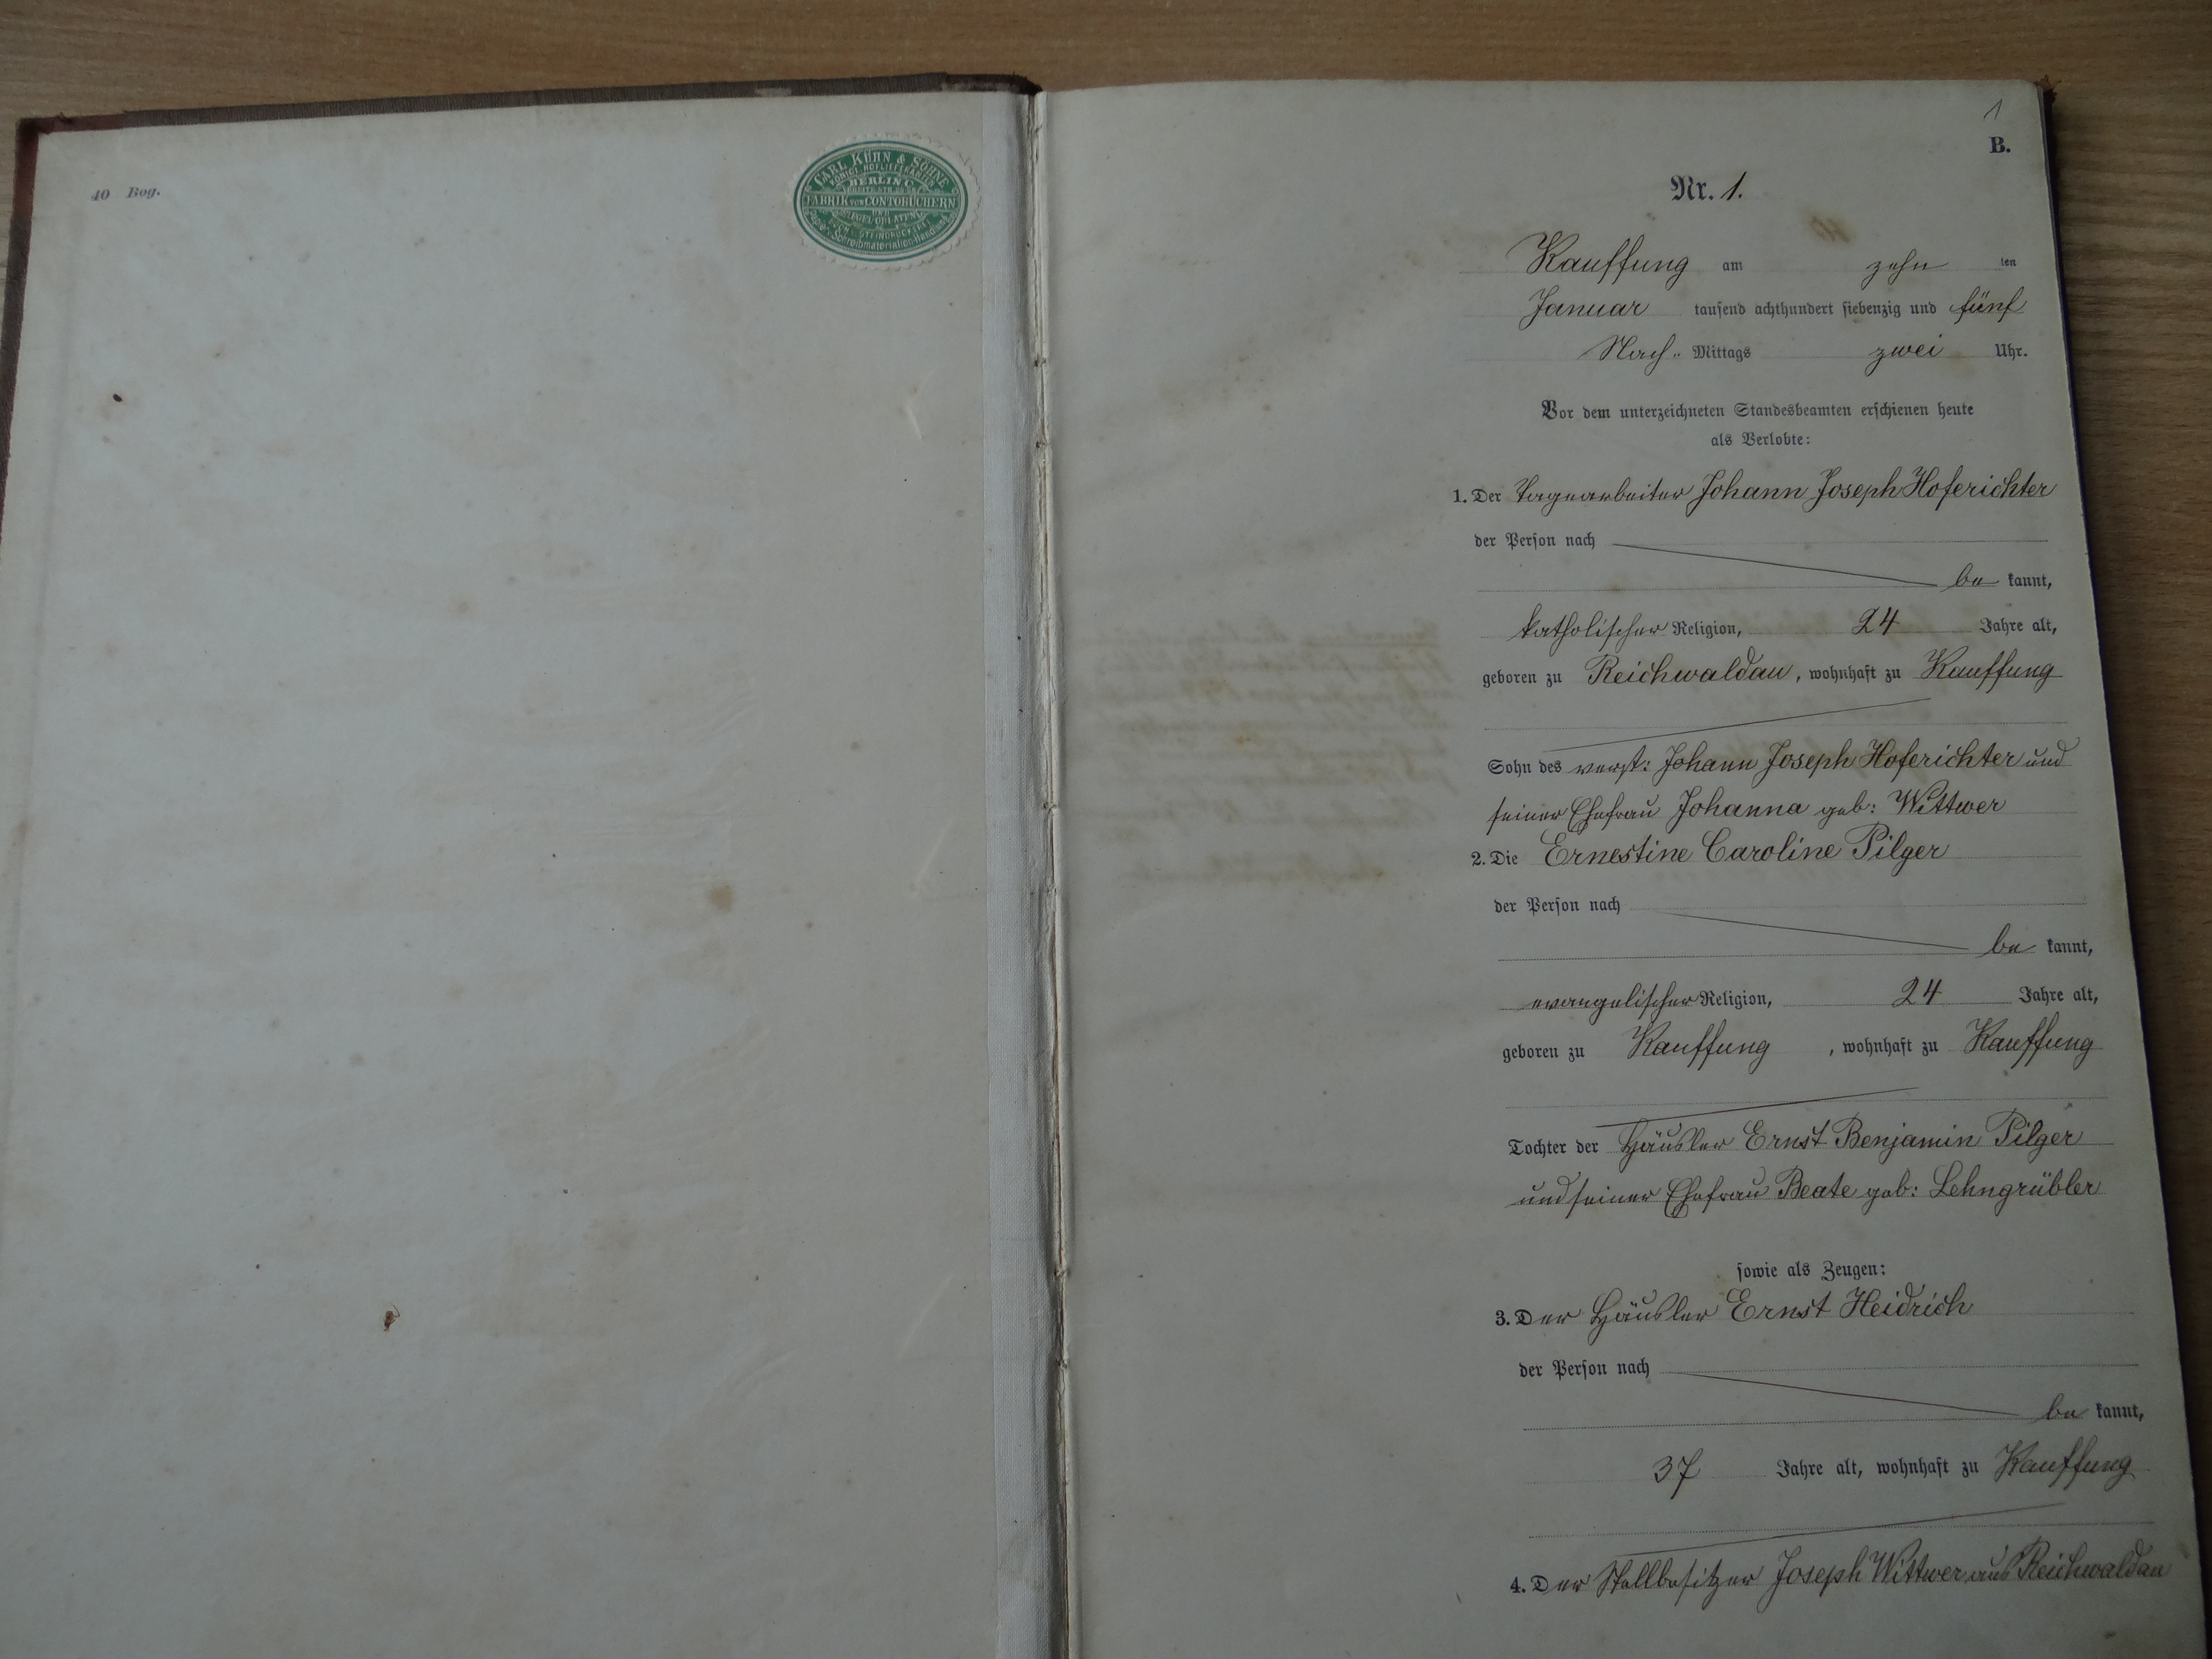 40 Bog.
CARL KÜHN & SÖHNE
KÖNIGL. HOFLIEFERANTEN
BERLIN C.
FABRIK VON CONTOBÜCHERN
UND
SIEGEL-OBLATEN
STEINDRUCKEREI
Schreibmaterialien-Handlung
1
B.
Nr. 1.
Kauffung am zehn ten
Januar tausend achthundert siebenzig und fünf
Nach- Mittags zwei Uhr.
Vor dem unterzeichneten Standesbeamten erschienen heute
als Verlobte:
1. Der Tagearbeiter Johann Joseph Hoferichter
der Person nach
be kannt,
katholischer Religion, 24 Jahre alt,
geboren zu Reichwaldau, wohnhaft zu Kauffung
Sohn des verst: Johann Joseph Hoferichter und
seiner Ehefrau Johanna geb: Wittwer
2. Die Ernestine Caroline Pilger
der Person nach
be kannt,
evangelischer Religion, 24 Jahre alt,
geboren zu Kauffung, wohnhaft zu Kauffung
Tochter der Häusler Ernst Benjamin Pilger
und seiner Ehefrau Beate geb: Lehngrübler
sowie als Zeugen:
3. Der Häusler Ernst Heidrich
der Person nach
be kannt,
37 Jahre alt, wohnhaft zu Kauffung
4. Der Stellbesitzer Joseph Wittwer aus Reichwaldau